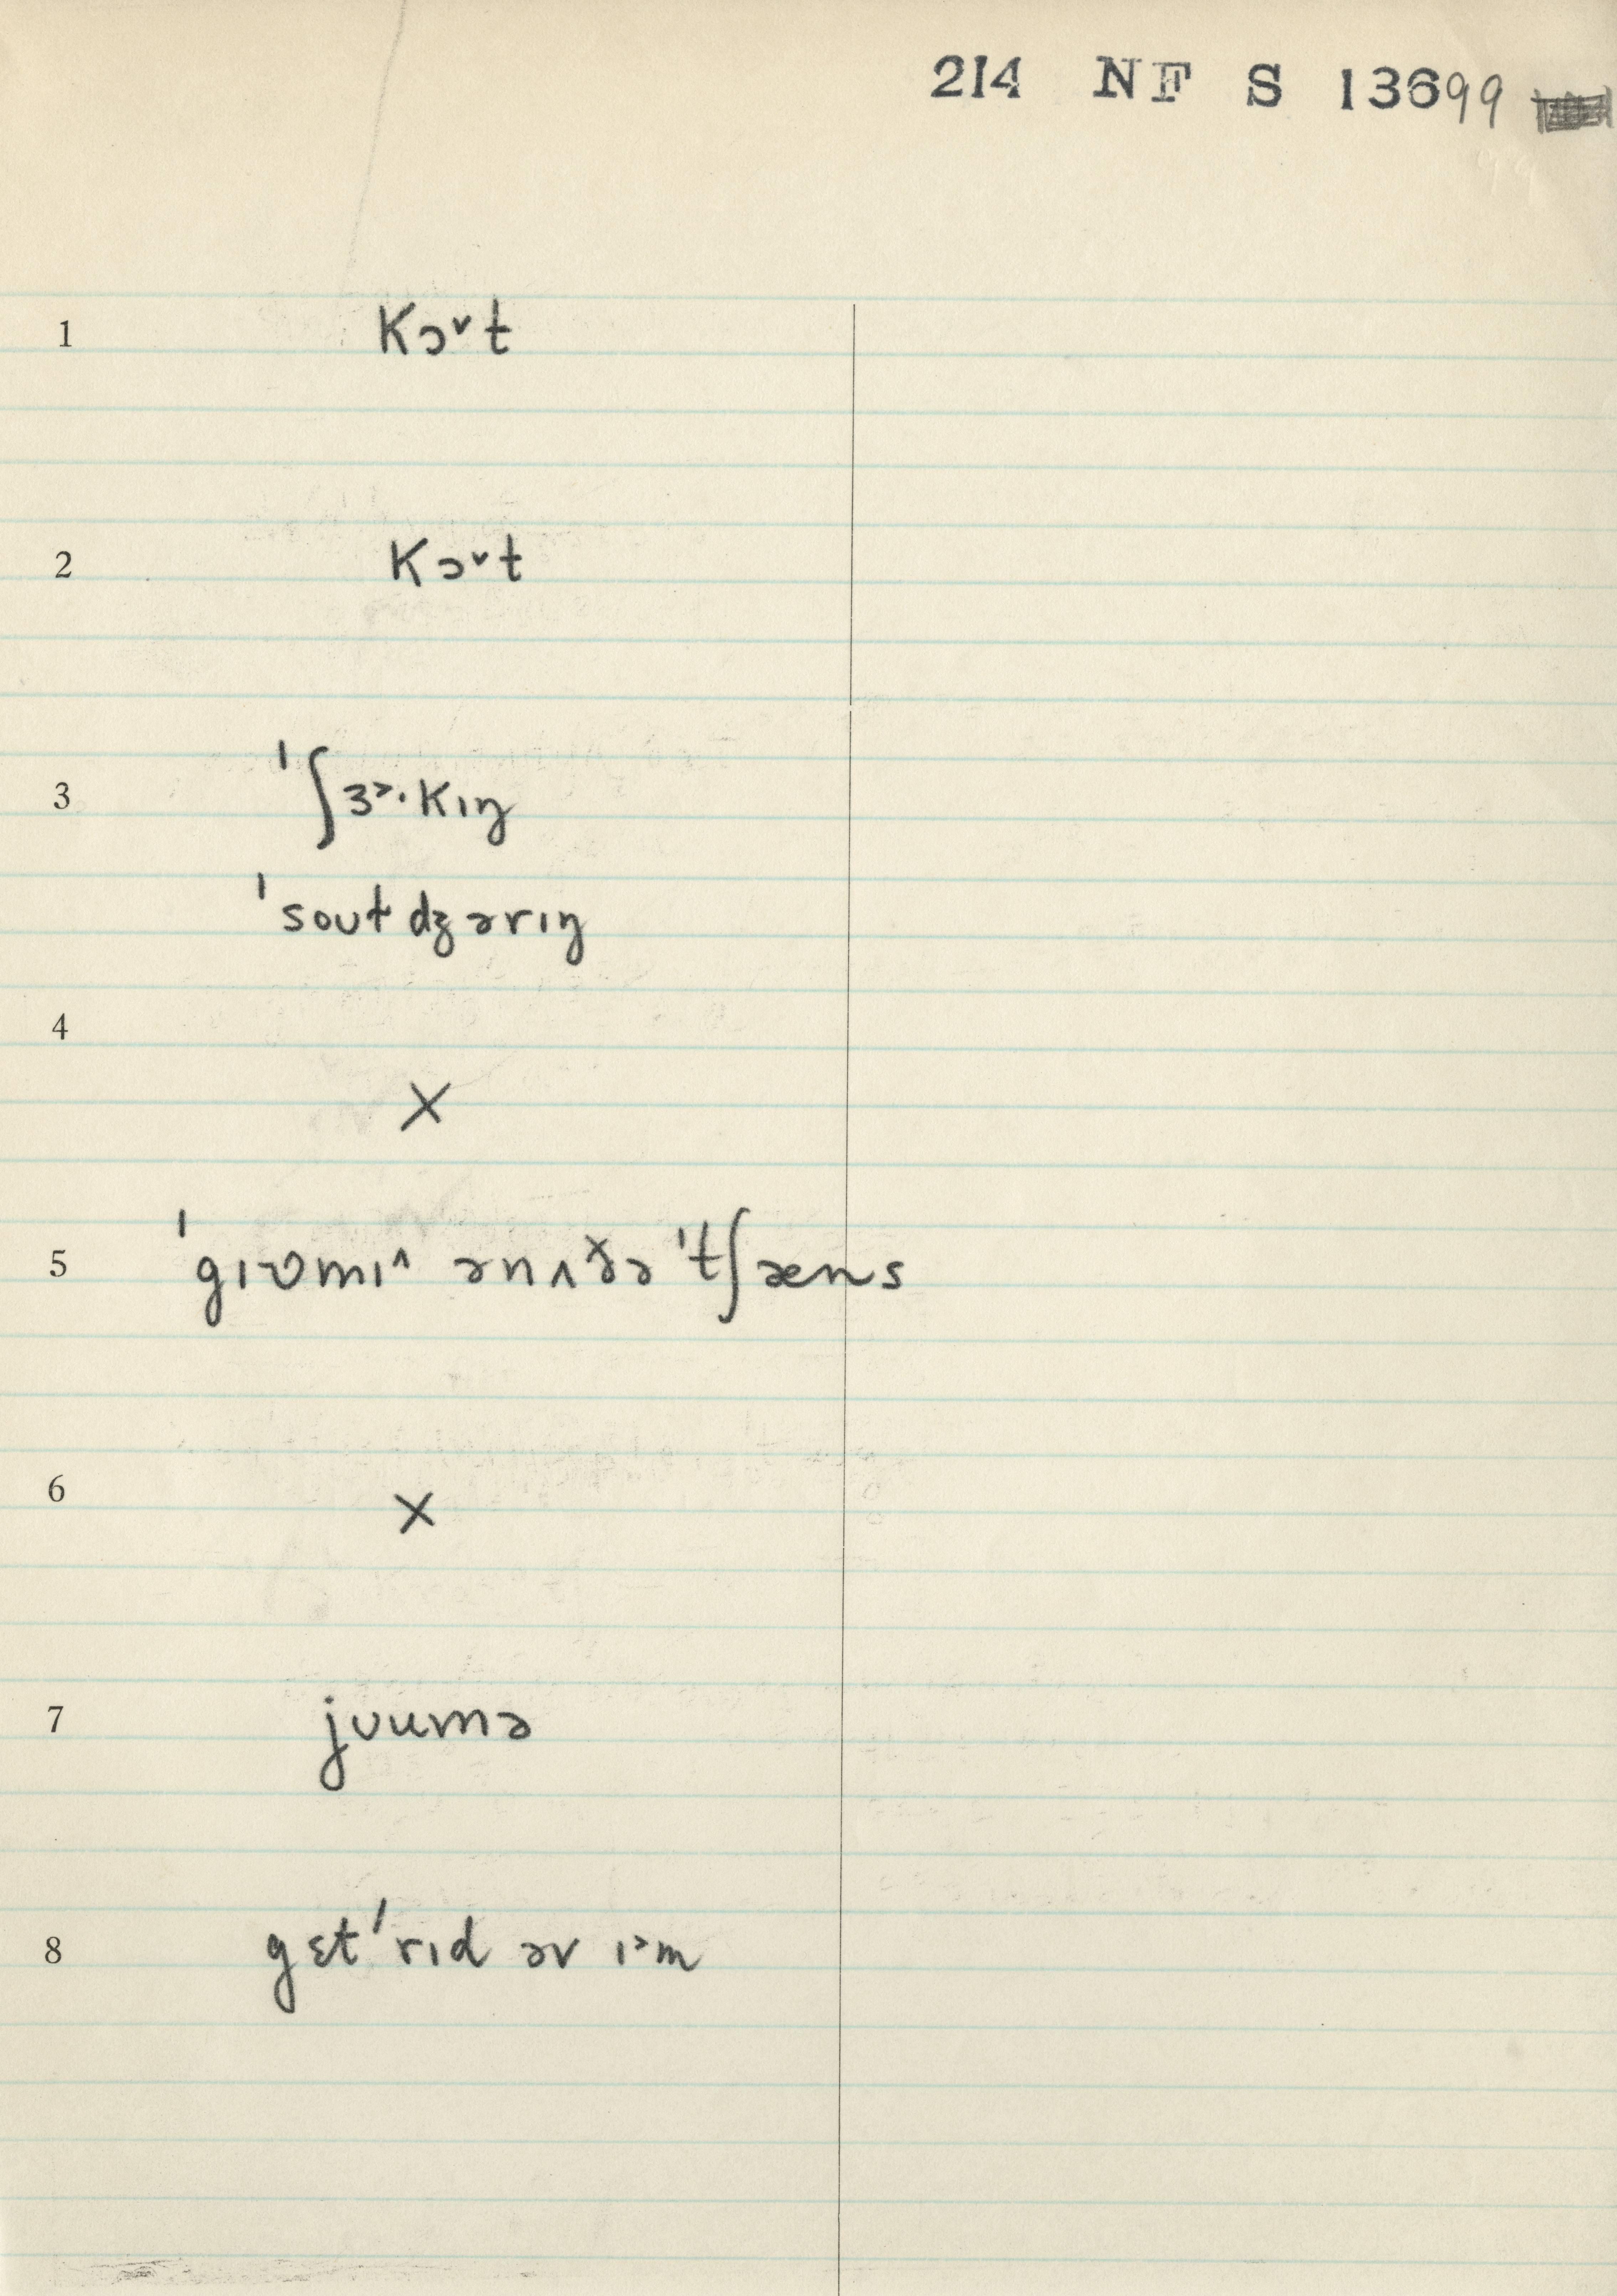 214 NF S 13699
1 kɔ˅t
2 kɔ˅t
3 ˈʃɜ˃·kɪŋ
ˈsoʊtdʒərɪŋ
4 ×
5 ˈgɪʋmɪ˄ ənʌðə ˈtʃæns
6 ×
7 jʊumə
8 gɛtˈrɪd əv ɪ˃m